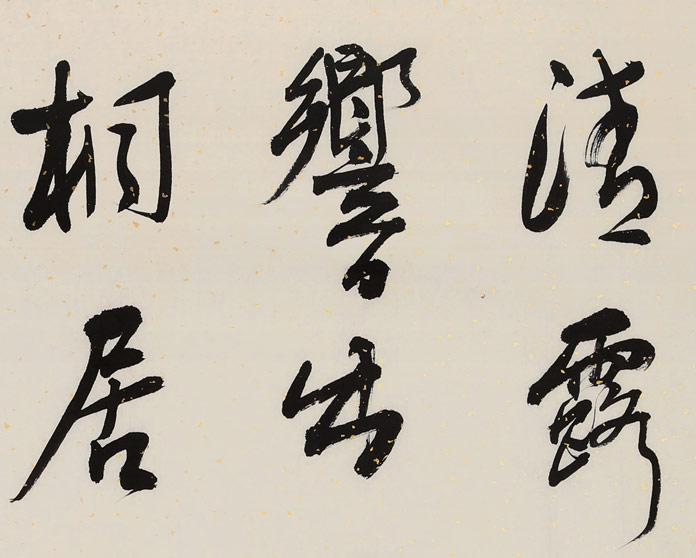 清露
響出
桐居